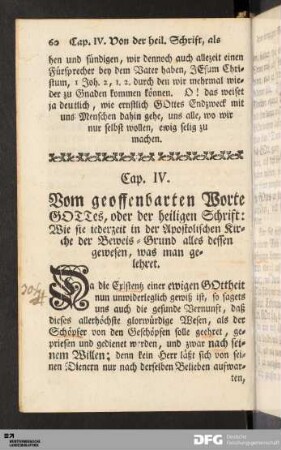 60 Cap. IV. Von der heil. Schrift, als
hen und sündigen, wir dennoch auch allezeit einen
Fürsprecher bey dem Vater haben, JEsum Chri-
stum, 1 Joh. 2, 1. 2. durch den wir mehrmal wie-
der zu Gnaden kommen können. O! das weiset
ja deutlich, wie ernstlich GOttes Endzweck mit
uns Menschen dahin gehe, uns alle, wo wir
nur selbst wollen, ewig selig zu
machen.
Cap. IV.
Vom geoffenbarten Worte
GOTTes, oder der heiligen Schrift:
Wie sie jederzeit in der Apostolischen Kir-
che der Beweis-Grund alles dessen
gewesen, was man ge-
lehret.
Da die Existenz einer ewigen GOttheit
nun unwiderleglich gewiß ist, so sagets
uns auch die gesunde Vernunft, daß
dieses allerhöchste glorwürdige Wesen, als der
Schöpfer von den Geschöpfen solle geehret, ge-
priesen und gedienet werden, und zwar nach sei-
nem Willen; denn kein Herr läßt sich von sei-
nen Dienern nur nach derselben Belieben aufwar-
ten,
DFG